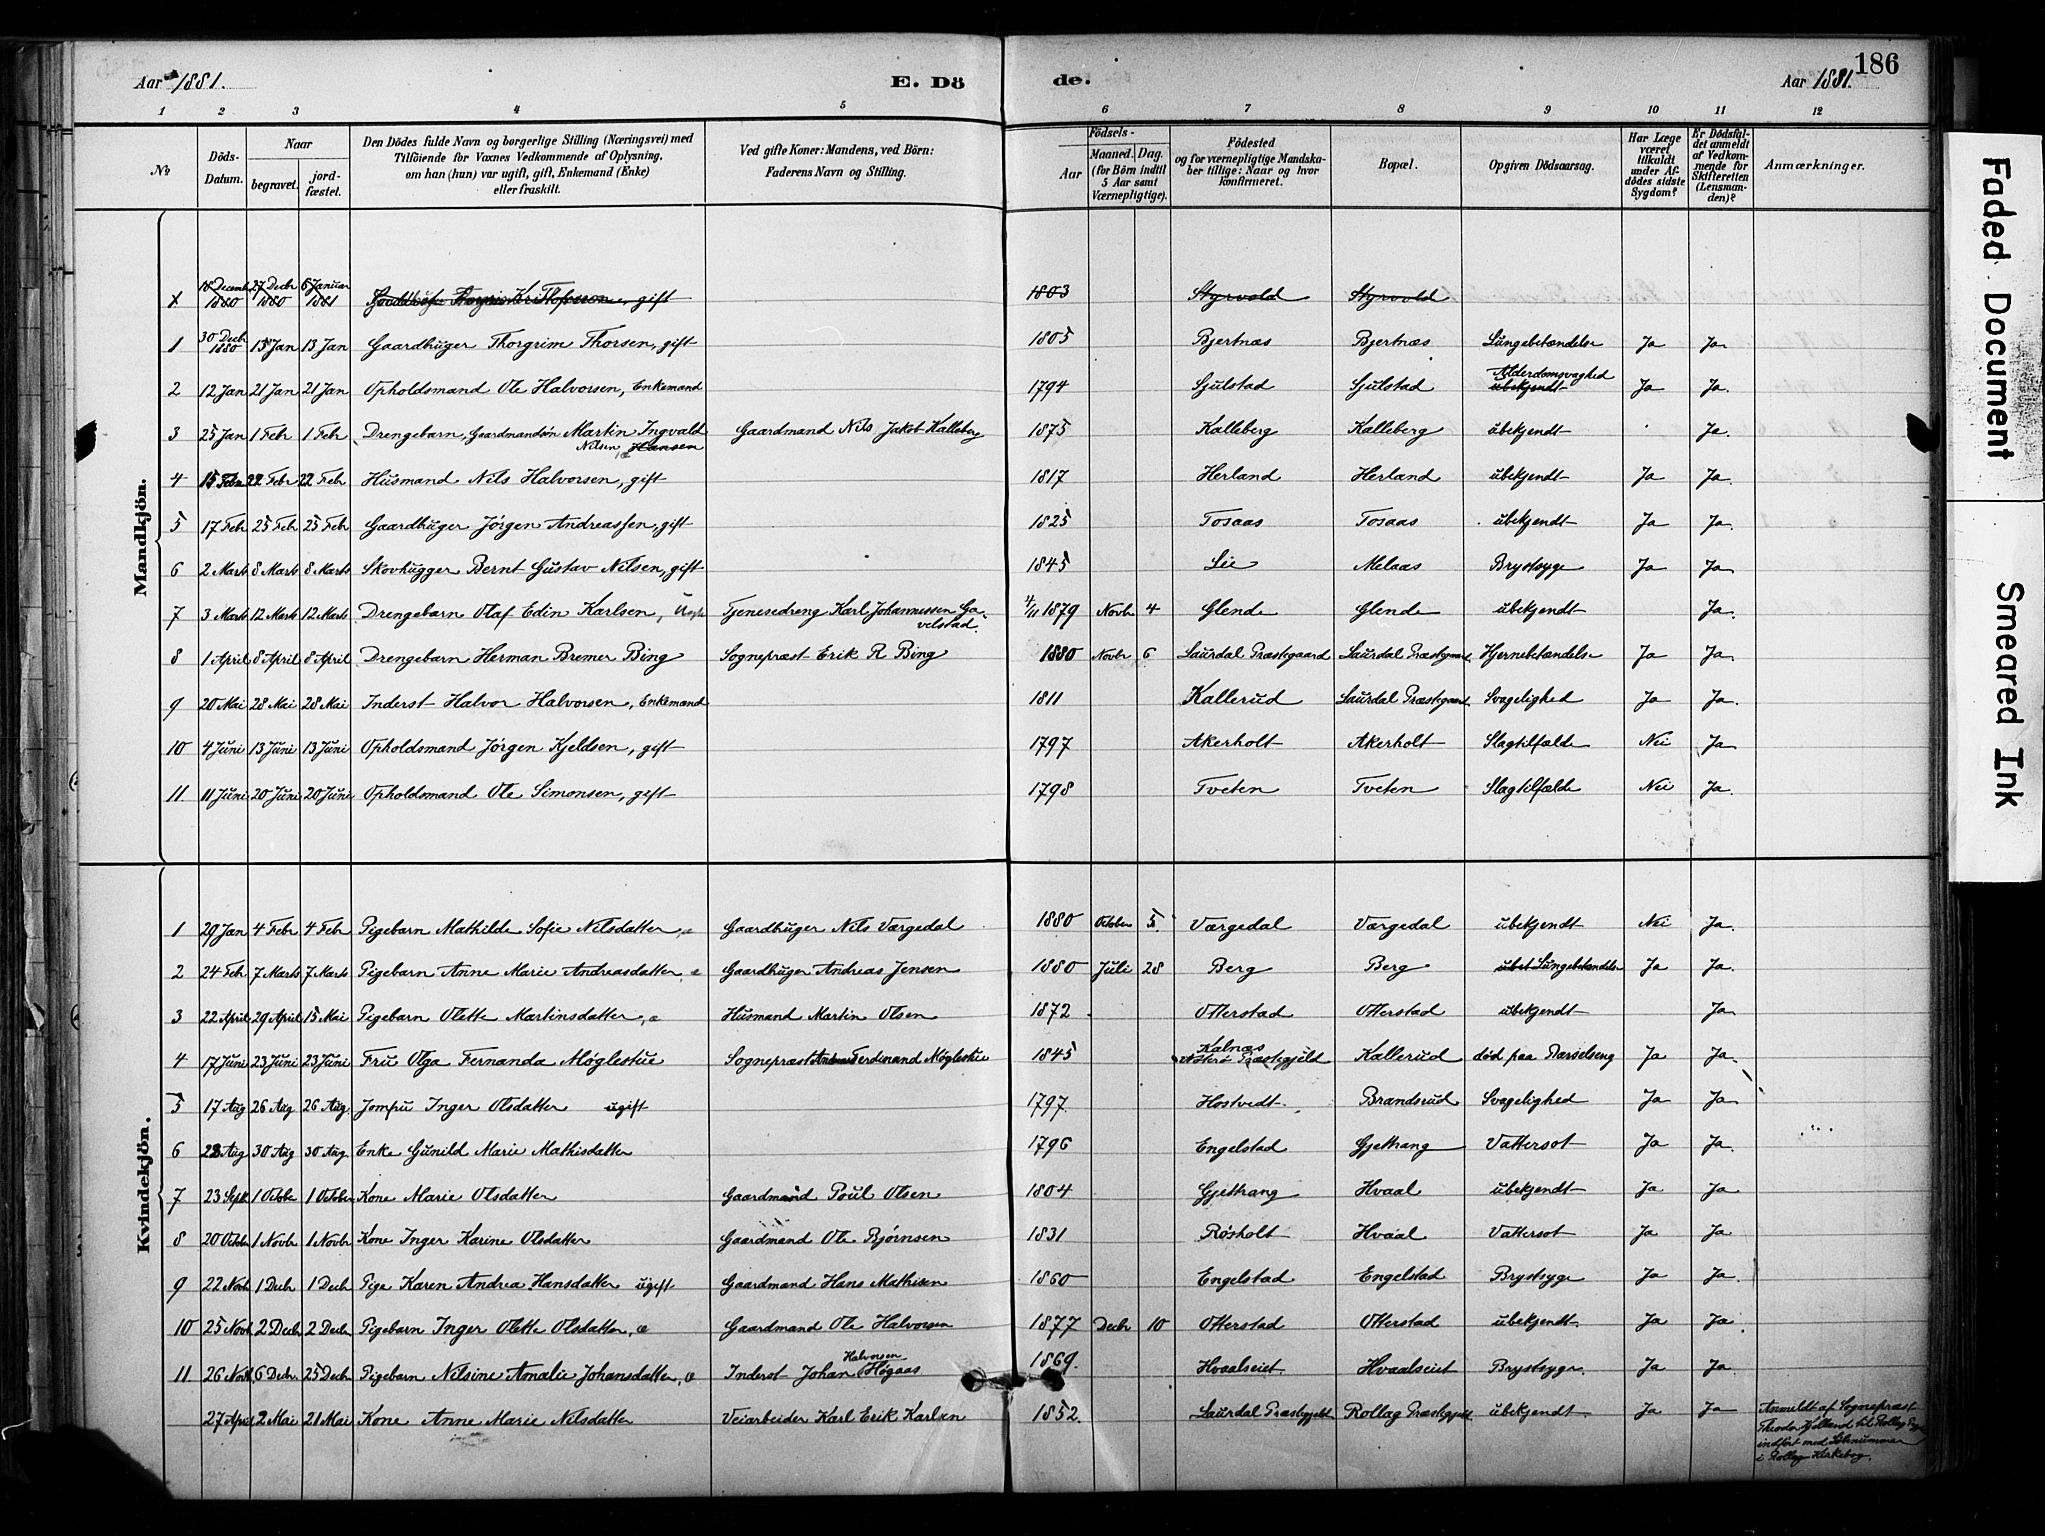 186
Aar 1881.
E. Dö
de.
Aar 1881.
1 2 3 4 5 6 7 8 9 10 11 12
№
Döds-Datum.
Naar
begravet.
jord-fæstet.
Den Dödes fulde Navn og borgerlige Stilling (Næringsvei) med
Tilföiende for Voxnes Vedkommende af Oplysning,
om han (hun) var ugift, gift, Enkemand (Enke)
eller fraskilt.
Ved gifte Koner: Mandens, ved Börn:
Faderens Navn og Stilling.
Födsels-
Aar
Maaned. Dag.
(for Börn indtil
5 Aar samt
Værnepligtige).
Födested
og for værnepligtige Mandska-
ber tillige: Naar og hvor
konfirmeret.
Bopæl.
Opgiven Dödsaarsag.
Har Læge
været
tilkaldt
under Af-
dödes sidste
Sygdom?
Er Dödsfal-
det anmeldt
af Vedkom-
mende for
Skifteretten
(Lensman-
den)?
Anmærkninger.
Mandkjön.
18 Decemb 1880 27 Decbr 1880 6 Januar 1881 Thorgrim Kristofersson, gift 1803 Styrvold Styrvold
1 30 Decb 1880 13 Jan 13 Jan Gaardbruger Thorgrim Thorsen, gift 1805 Bjertnæs Bjertnæs Lungebetændelse Ja Ja
2 12 Jan 21 Jan 21 Jan Opholdsmand Ole Halvorsen, Enkemand 1794 Gjulstad Gjulstad Alderdomsvaghed ubekjendt Ja Ja.
3 25 Jan 1 Febr 1 Febr Drengebarn, Gaardmandsøn Martin Ingvald Nilsen Hansen Gaardmand Nils Jakob Kalleberg 1875 Kalleberg Kalleberg ubekjendt Ja.
4 15 Febr 22 Febr 22 Febr Husmand Nils Halvorsen, gift 1817 Herland Herland ubekjendt Ja Ja.
5 17 Febr 25 Febr 25 Febr Gaardbruger Jörgen Andreassen, gift 1825 Tosaas Tosaas ubekjendt Ja Ja.
6 2 Marts 8 Marts 8 Marts Skovhugger Bernt Gustav Nilsen, gift 1845 Lie Melaas Brystsyge Ja Ja
7 3 Marts 12 Marts 12 Marts Drengebarn Olaf Edin Karlsen, Uægte Tjenestedreng Karl Johannessen Gavelstad 4/11 1879 Novbr 4 Glende Glende ubekjendt Ja.
8 1 April 8 April 8 April Drengebarn Herman Bremer Bing Sogneprest Erik R Bing 1880 Novbr 6 Laurdal Præstegaard Laurdal Præstegaard Hjernebetændelse Ja Ja
9 20 Mai 28 Mai 28 Mai Inderst Halvor Halvorsen, Enkemand 1811 Kallerud Laurdal Præstegaard Svagelighed Ja Ja.
10 4 Juni 13 Juni 13 Juni Opholdsmand Jörgen Kjeldsen, gift 1797 Akerholt Akerholt Slagtilfælde Nei Ja
11 11 Juni 20 Juni 20 Juni Opholdsmand Ole Simonsen, gift 1798 Tveten Tveten Slagtilfælde Nei Ja.
Kvindekjön.
1 29 Jan 4 Febr 4 Febr Pigebarn Mathilde Sofie Nilsdatter, æ Gaardbruger Nils Værgedal 1880 October 5 Værgedal Værgedal ubekjendt Nei Ja.
2 24 Feb. 7 Marts 7 Marts Pigebarn Anne Marie Andreasdatter, æ Gaardbruger Andreas Jensen 1880 Juli 28 Berg Berg ubek Lungebetændelse Ja Ja.
3 22 April 29 April 15 Mai Pigebarn Olette Martinsdatter, æ Husmand Martin Olsen 1872 Otterstad Otterstad ubekjendt Ja
4 17 Juni 23 Juni 23 Juni Fru Olga Fernanda Møglestue Sogneprest Andreas Ferdinand Møglestue 1845 Kalnæs Præstegjeld Kallerud død paa Barselseng Ja Ja
5 17 Aug 26 Aug 26 Aug. Jomfru Inger Olsdatter ugift 1797 Hostvedt Brandsrud Svagelighed Ja Ja
6 23 Aug 30 Aug 30 Aug. Enke Gunild Marie Mathisdatter 1796 Engelstad Gjettrang Vattersot Ja Ja.
7 23 Septb 1 Octobr 1 October Kone Marie Olsdatter Gaardmand Poul Olsen 1804 Gjettrang Hvaal ubekjendt Ja Ja
8 20 Octobr 1 Novbr 1 Novbr Kone Inger Karine Olsdatter Gaardmand Ole Bjørnsen 1831 Røsholt Hvaal Vattersot Ja Ja
9 22 Novb 1 Decbr 1 Decb Pige Karen Andrea Hansdatter ugift Gaardmand Hans Mathisen 1860 Engelstad Engelstad Brystsyge Ja Ja.
10 25 Novb 2 Decb 2 Decb Pigebarn Inger Olette Olsdatter, æ Gaardmand Ole Halvorsen 1877 Decbr 10 Otterstad Otterstad ubekjendt. Ja Ja
11 26 Novb 6 Decb. 25 Decb Pigebarn Nilsine Amalie Johansdatter, æ Inderst Johan Halvorsen Høgaas 1869. Hvaalseiet Hvaalseiet Brystsyge. Ja Ja
27 April 2 Mai 21 Mai Kone Anne Marie Nilsdatter Veiarbeider Karl Erik Karlsen 1852. Laurdal Præstegjeld Rollag Præstegjeld ubekjendt. Ja Ja
Anmeldt af Sogneprest
Theodor Kjelland til Rollag
indført med Løbenummer
i Rollag Kirkebog.
Faded Document
Smeared Ink